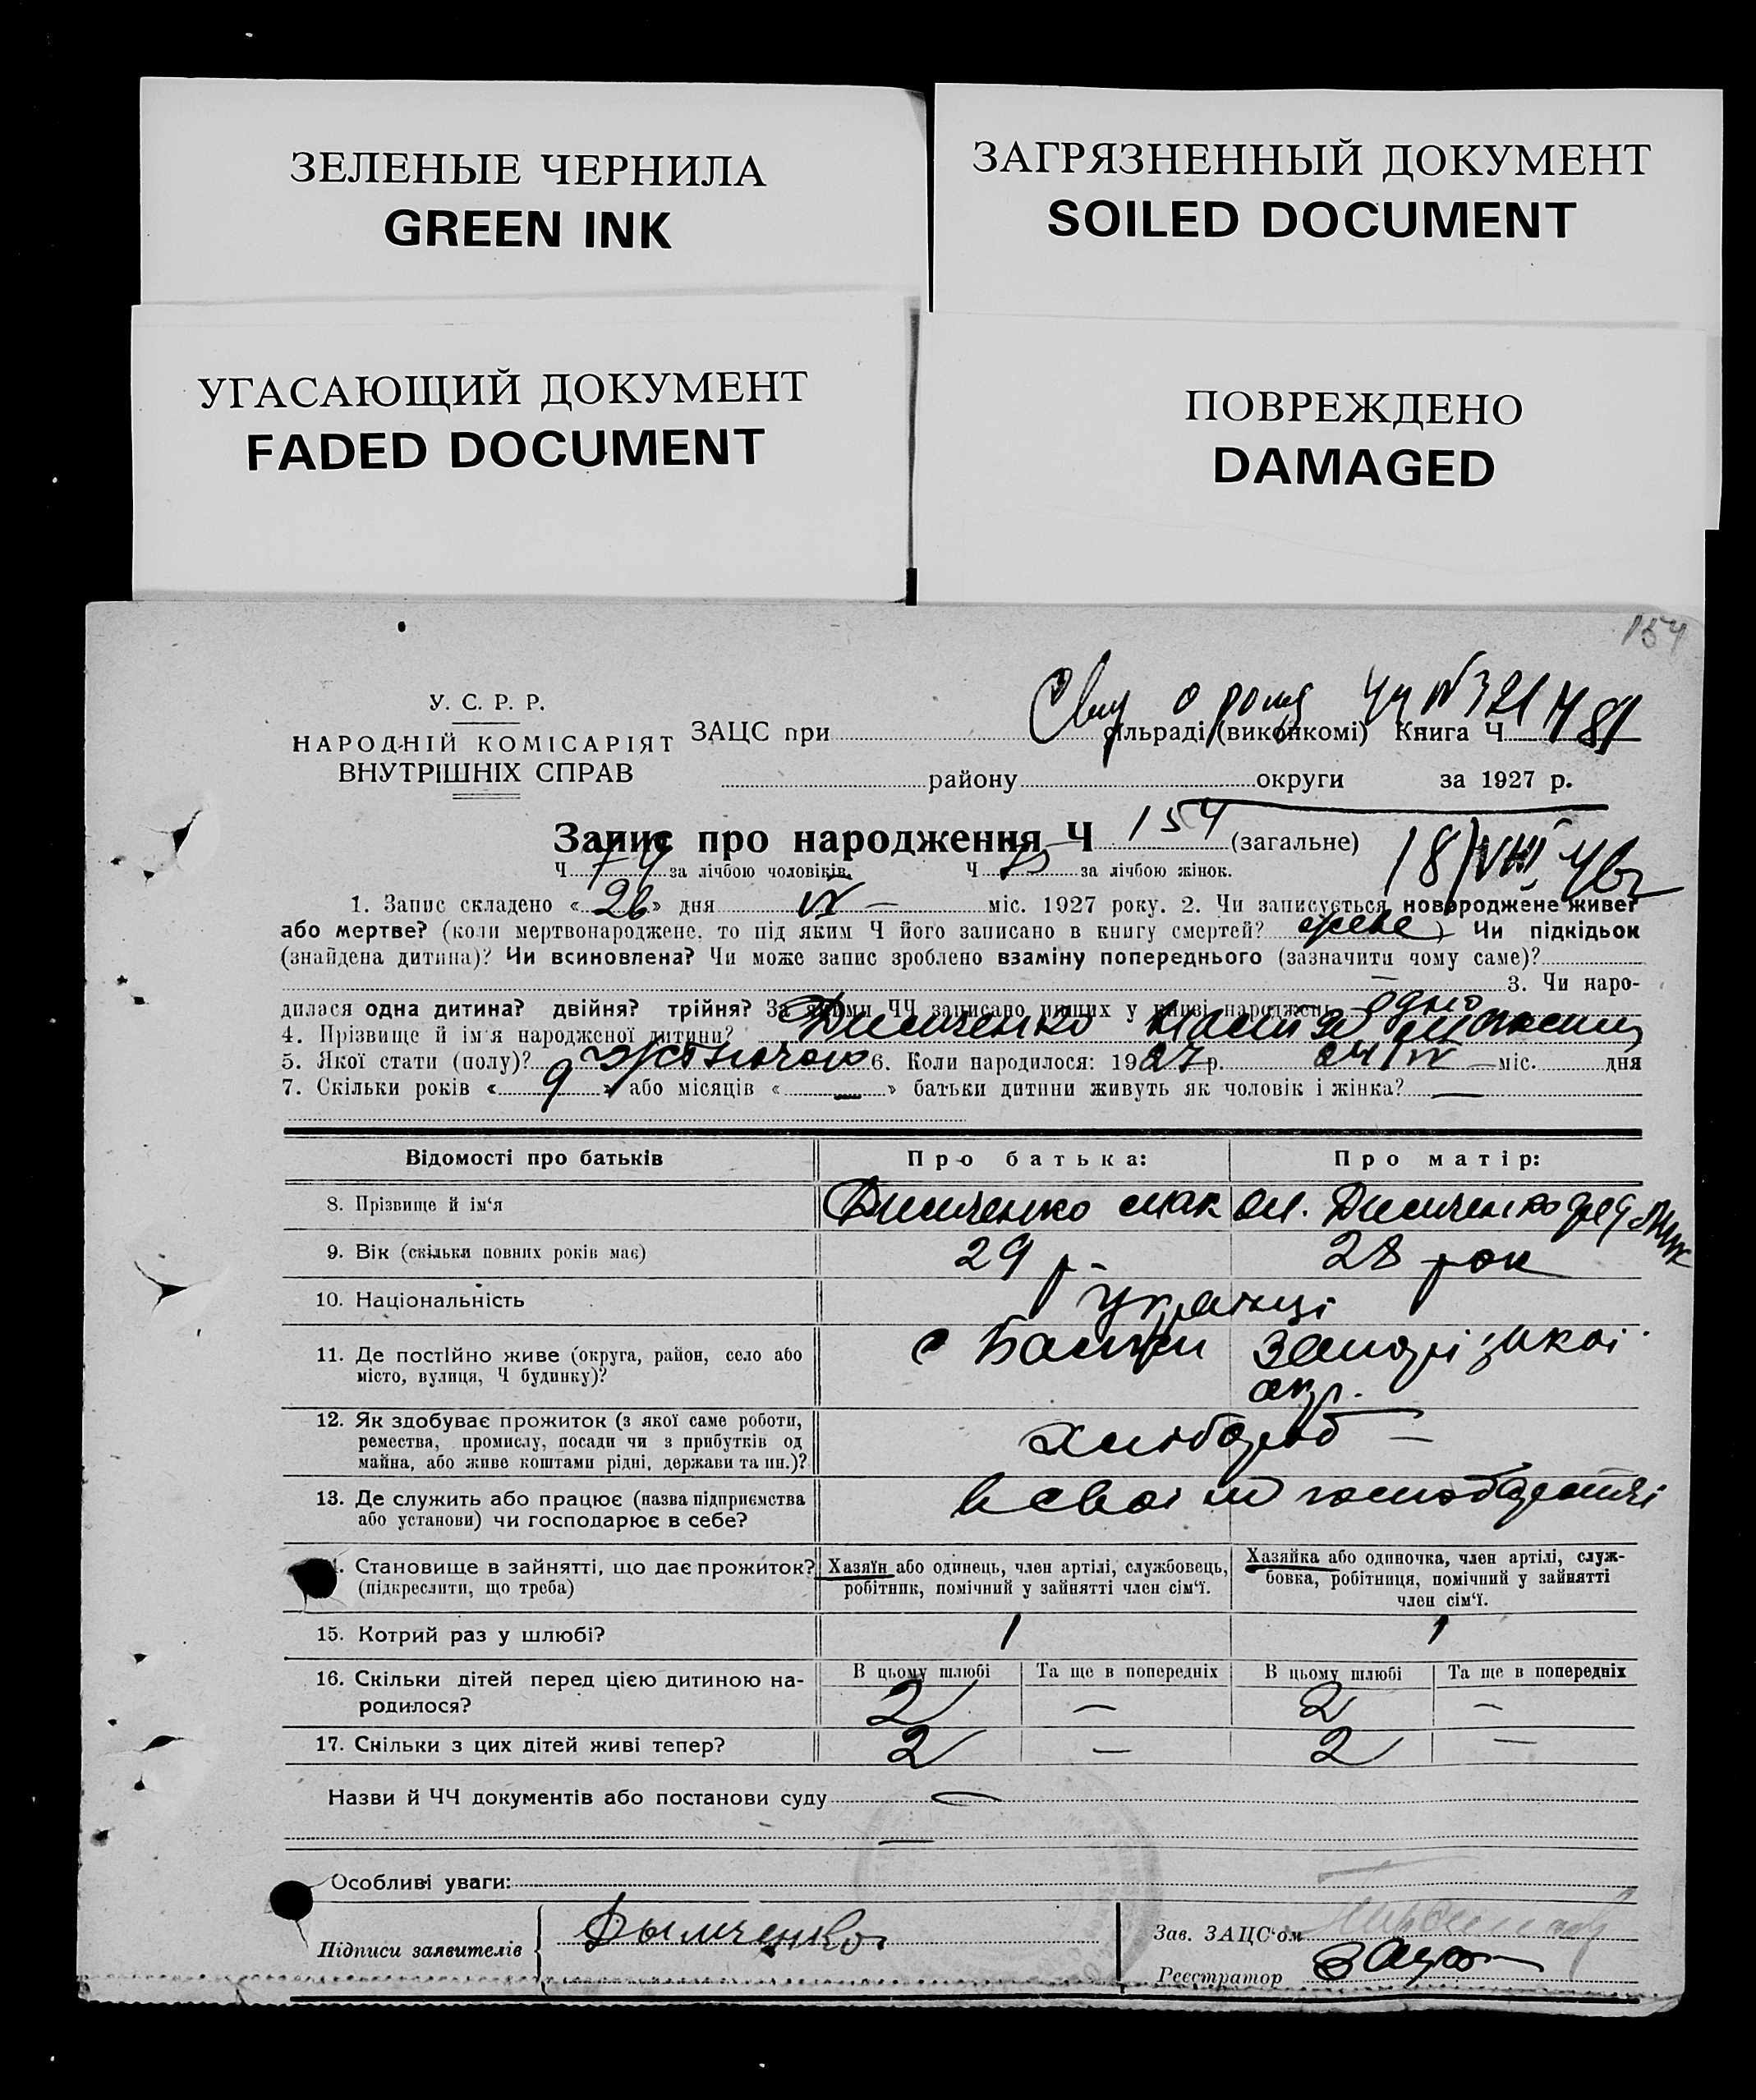 ЗЕЛЕНЫЕ ЧЕРНИЛА
GREEN INK
ЗАГРЯЗНЕННЫЙ ДОКУМЕНТ
SOILED DOCUMENT
УГАСАЮЩИЙ ДОКУМЕНТ
FADED DOCUMENT
ПОВРЕЖДЕНО
DAMAGED
154
У. С. Р. Р.
НАРОДНІЙ КОМІСАРІЯТ
ВНУТРІШНІХ СПРАВ
ЗАЦС при сільраді (виконкомі) Книга Ч.
району округи за 1927 р.
Запис про народження Ч 154 (загальне)
Ч. 79 за лічбою чоловіків. Ч. 75 за лічбою жінок.
18/VIII
1. Запис складено « 26 » дня IV — міс. 1927 року. 2. Чи записується новороджене живе?
або мертве? (коли мертвонароджене, то під яким Ч його записано в книгу смертей? живе) Чи підкідьок
(знайдена дитина)? Чи всиновлена? Чи може запис зроблено взаміну попереднього (зазначити чому саме)?
— 3. Чи наро-
дилася одна дитина? двійня? трійня? За якими ЧЧ записано инших у книзі народжень одно
4. Прізвище й ім'я народженої дитини? Димченко
5. Якої стати (полу)? жіночою 6. Коли народилося: 1927 р. 24 IV — міс. дня
7. Скільки років « 9 » або місяців « — » батьки дитини живуть як чоловік і жінка? —
Відомості про батьків Про батька: Про матір:
8. Прізвище й ім'я Димченко Димченко
9. Вік (скільки повних років має) 29 р. 28 рок
10. Національність українці
11. Де постійно живе (округа, район, село або
місто, вулиця, Ч будинку)? с Запорізької
окр.
12. Як здобуває прожиток (з якої саме роботи,
ремества, промислу, посади чи з прибутків од
майна, або живе коштами рідні, держави та ин.)? Хлібороб —
13. Де служить або працює (назва підприємства
або установи) чи господарює в себе? в своім господарстві
14. Становище в зайнятті, що дає прожиток?
(підкреслити, що треба)
Хазяїн або одинець, член артілі, службовець,
робітник, помічний у зайнятті член сім'ї.
Хазяйка або одиночка, член артілі, служ-
бовка, робітниця, помічний у зайнятті
член сім'ї.
15. Котрий раз у шлюбі? 1 1
16. Скільки дітей перед цією дитиною на-
родилося?
В цьому шлюбі Та ще в попередніх В цьому шлюбі Та ще в попередніх
2 — 2 —
17. Скільки з цих дітей живі тепер? 2 — 2 —
Назви й ЧЧ документів або постанови суду —
—
Особливі уваги:
Підписи заявителів Дымченко
Зав. ЗАЦС'ом
Реєстратор